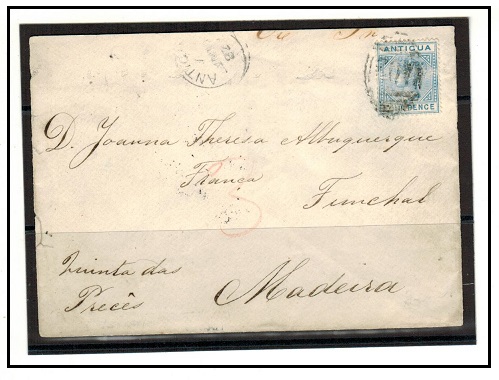 ANTIGUA
PENCE
D. Joanna Theresa Albuquerque
França
Funchal
Quinta das
Precês
Madeira